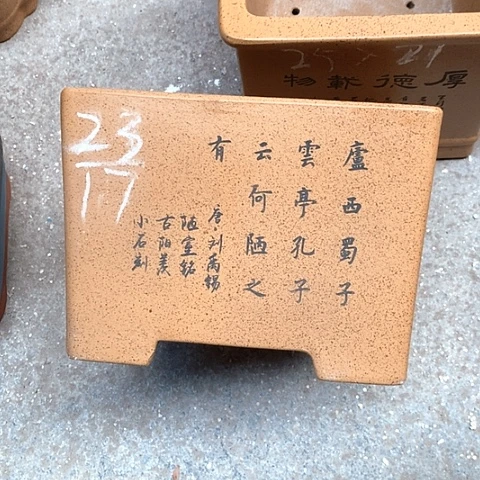 廬西蜀子
雲亭孔子
云何陋之
有
唐·刘禹锡
陋室銘
古阳羡
小石刻
23
17
厚德載物
25×21